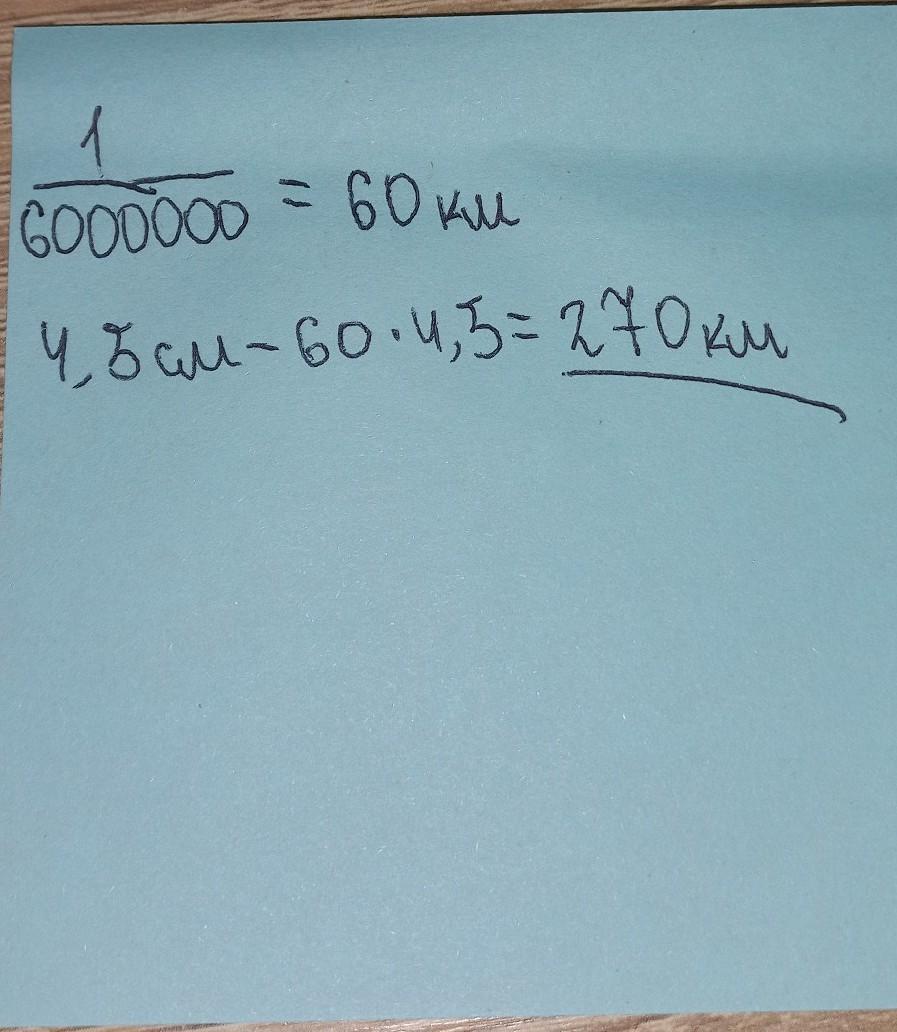 1
6000000 = 60 км
4,5 см - 60 · 4,5 = 270 км